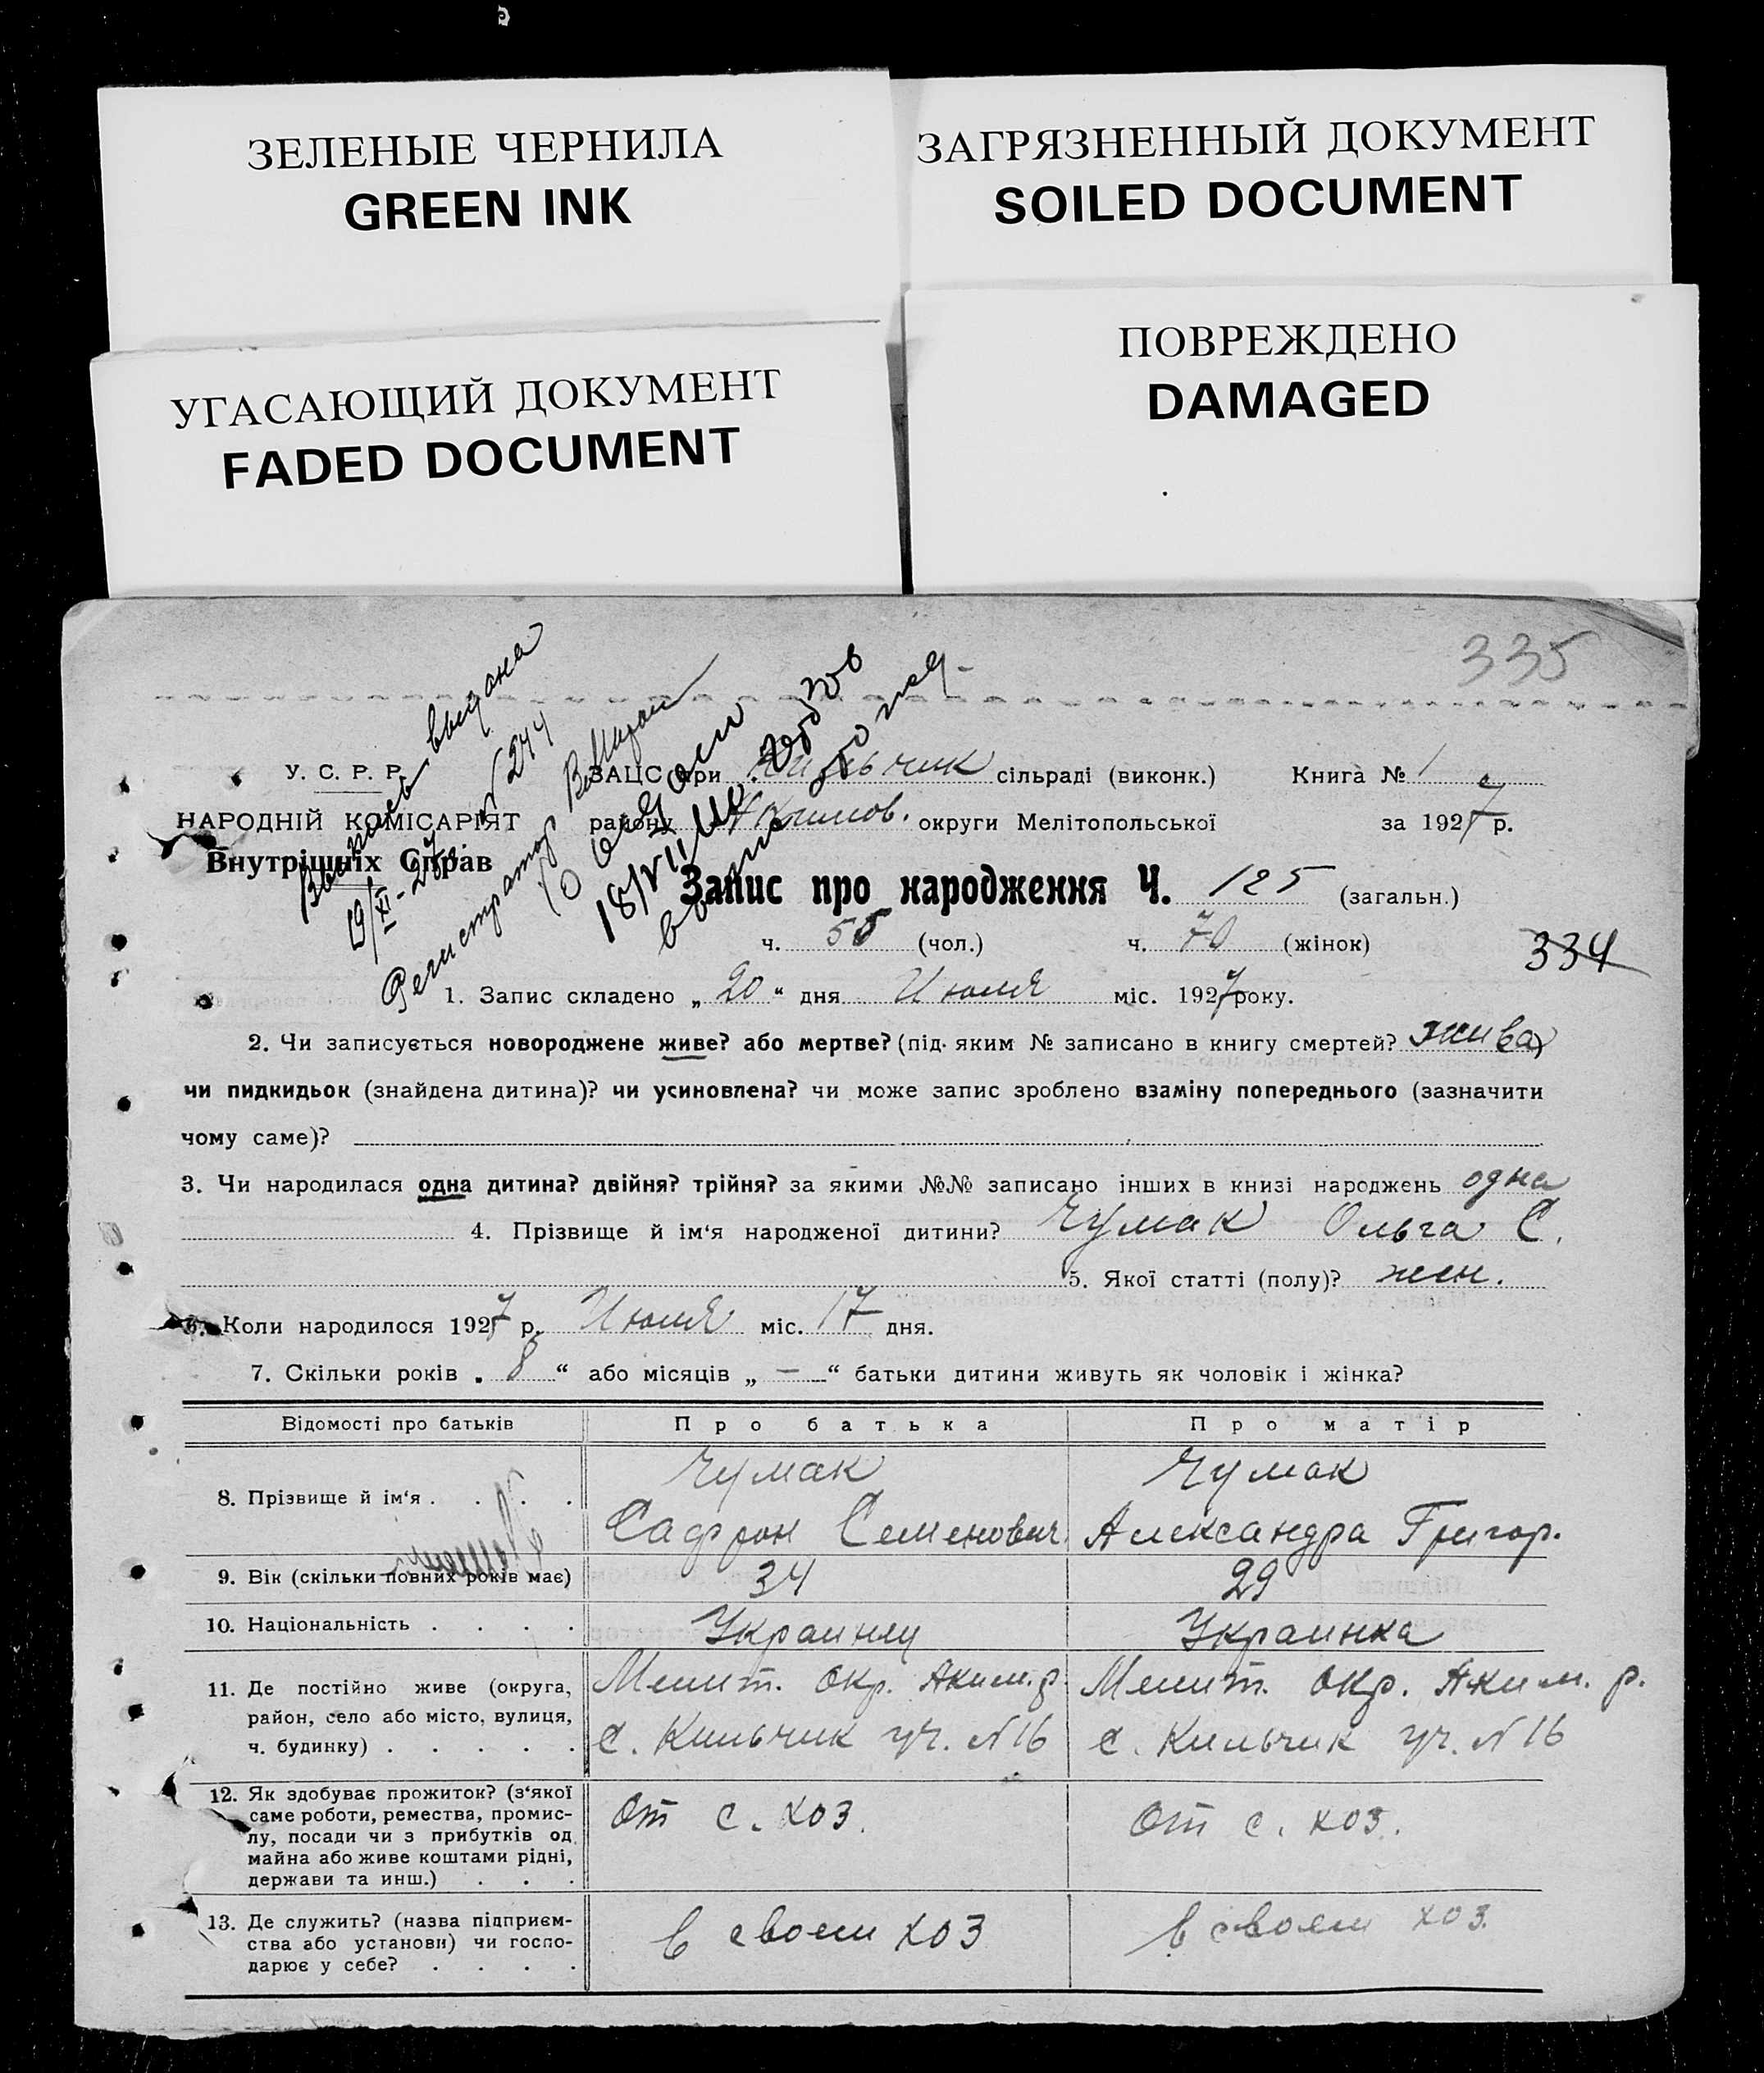 ЗЕЛЕНЫЕ ЧЕРНИЛА
GREEN INK
ЗАГРЯЗНЕННЫЙ ДОКУМЕНТ
SOILED DOCUMENT
УГАСАЮЩИЙ ДОКУМЕНТ
FADED DOCUMENT
ПОВРЕЖДЕНО
DAMAGED
335
Выпись выдана
19/XI-27г. N 244
Регистратор
18/VII
У. С. Р. Р.
НАРОДНІЙ КОМІСАРІЯТ
Внутрішніх Справ
ЗАЦС при Кильчик сільраді (виконк.) Книга № 1
району Акимов. округи Мелітопольської за 1927 р.
Запис про народження Ч. 125 (загальн.)
ч. 55 (чол.) ч. 70 (жінок)
334
1. Запис складено „ 20 “ дня Июля міс. 1927 року.
2. Чи записується новороджене живе? або мертве? (під яким № записано в книгу смертей? жива
чи пидкидьок (знайдена дитина)? чи усиновлена? чи може запис зроблено взаміну попереднього (зазначити
чому саме)?
3. Чи народилася одна дитина? двійня? трійня? за якими №№ записано інших в книзі народжень одна
4. Прізвище й ім‘я народженої дитини? Чумак Ольга С.
5. Якої статті (полу)? жен.
6. Коли народилося 1927 р. Июля міс. 17 дня.
7. Скільки років „ 8 “ або місяців „ — “ батьки дитини живуть як чоловік і жінка?
Відомості про батьків Про батька Про матір
8. Прізвище й ім‘я . . . .
Чумак
Сафрон Семенович
Чумак
Александра Григор.
9. Вік (скільки повних років має) 34 29
10. Національність . . . . Украинец Украинка
11. Де постійно живе (округа,
район, село або місто, вулиця,
ч. будинку) . . . . .
Мелит. окр. Аким. р.
с. Кильчик уч. N 16
Мелит. окр. Аким. р.
с. Кильчик уч. N 16
12. Як здобуває прожиток? (з‘якої
саме роботи, ремества, промис-
лу, посади чи з прибутків од
майна або живе коштами рідні,
держави та инш.) . . .
От с. хоз.
От с. хоз.
13. Де служить? (назва підприєм-
ства або установи) чи госпо-
дарює у себе? . . . .
в своем хоз
в своем хоз.